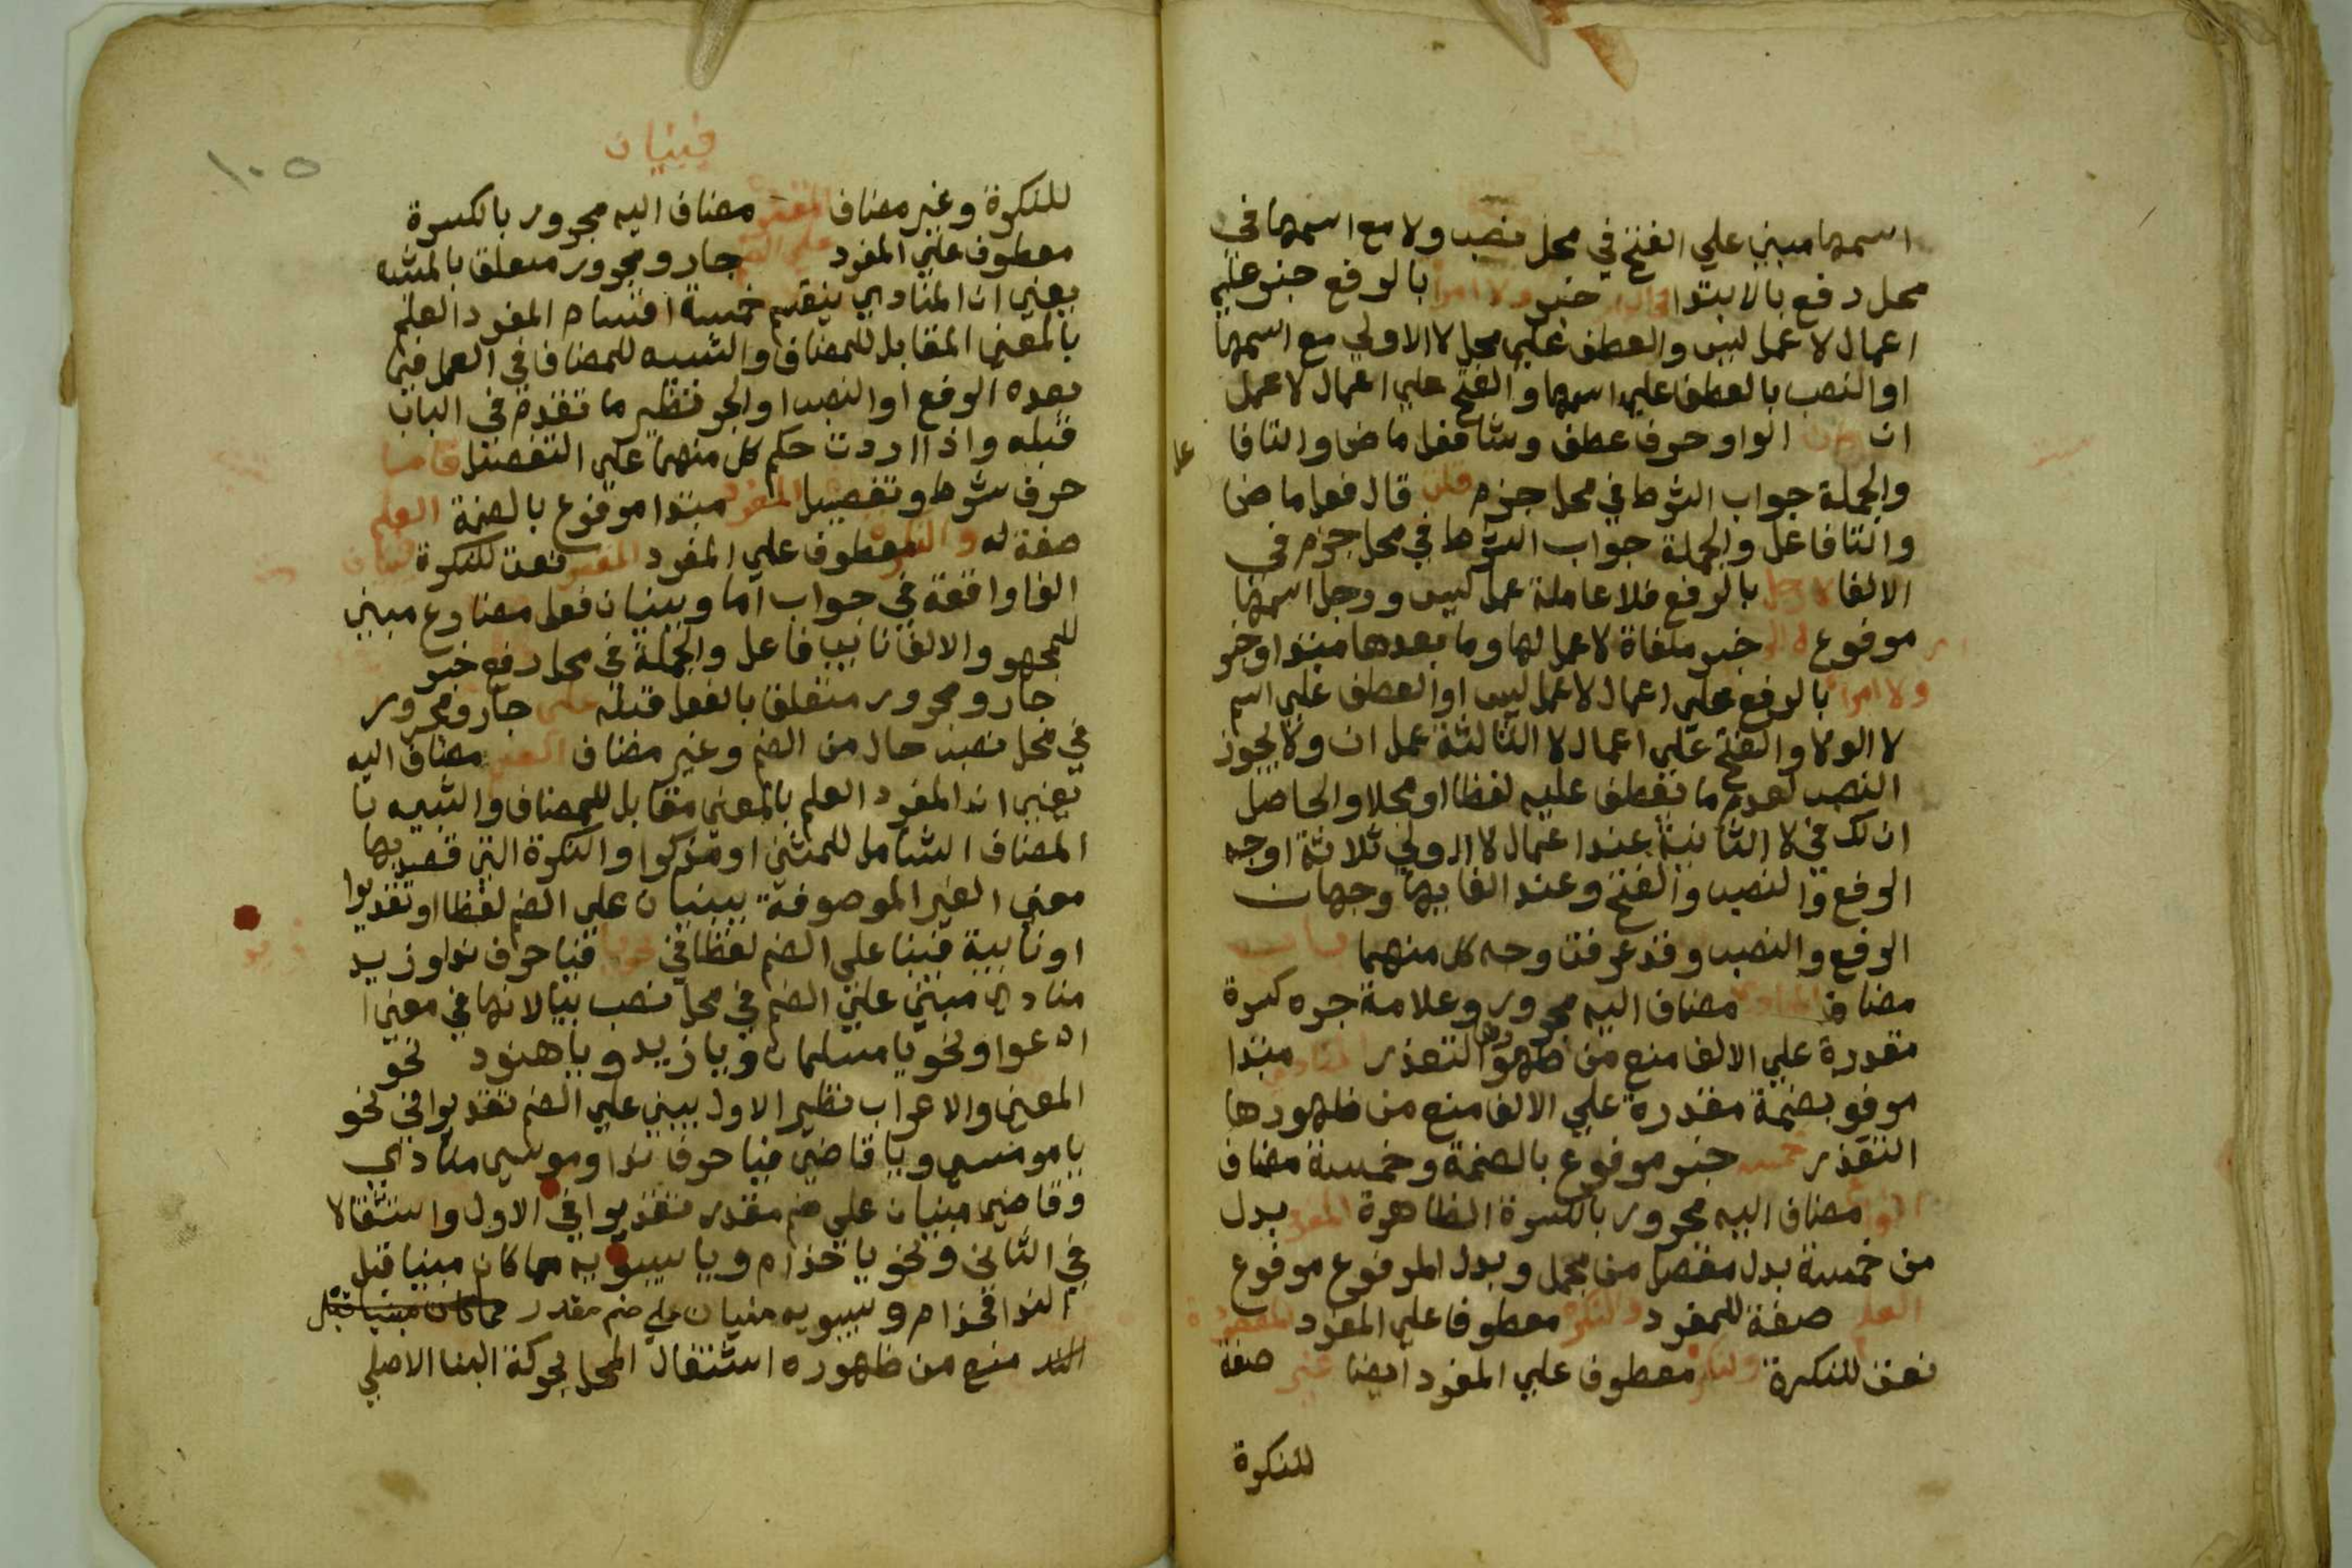 اسمها مبني علي الفتح في محل نصب ولا مع اسمها في
محل رفع بالابتدا في الدار خبر ولا امراة بالرفع خبر علي
اعمال لا عمل ليس والعطف علي محل لا الاولي مع اسمها
او النصب بالعطف علي اسمها والفتح علي اعمال لا عمل
ان الواو حرف عطف وشا فعل ماض والتا فا
عل
والجملة جواب الشرط في محل جزم قلت قال فعل ماض
والتا فاعل والجملة جواب الشرط في محل جزم في
الالغا لا رجل بالرفع فلا عاملة عمل ليس ورجل اسمها
مرفوع خبر ملغاة لا عمل لها وما بعدها مبتدا وخبر
ولا امراة بالرفع علي اعمال لا عمل ليس او العطف علي اسم
لا الولا والفتح علي اعمال لا الثالثة عمل ان ولا يجوز
النصب لعدم ما تعطف عليه لفظا او محلا والحاصل
ان لك في لا الثانية عند اعمال لا الاولي ثلاثة اوجه
الرفع والنصب والفتح وعند الغايها وجهان
الرفع والنصب وقد عرفت وجه كل منهما باب
مضاف المنادي مضاف اليه مجرور وعلامة جره كسرة
مقدرة علي الالف منع من ظهورها التعذر المنادي مبتدا
مرفو بضمة مقدرة علي الالف منع من ظهورها
التعذر خمسة خبر مرفوع بالضمة وخمسة مضاف
انواع مضاف اليه مجرور بالكسرة الظاهرة المفرد بدل
من خمسة بدل مفصل من مجمل وبدل المرفوع مرفوع
العلم صفة للمفرد والنكرة معطوفا علي المفرد المقصودة
نعت للنكرة والنكرة معطوف علي المفرد ايضا غير صفة
للنكرة
١٠٥
فيبنيان
للنكرة وغير مضاف المقصودة مضاف اليه مجرور بالكسرة
معطوف علي المفرد جار ومجرور متعلق بالمشبه
يعني ان المنادي ينقسم خمسة اقسام المفرد العلم
بالمعني المقابل للمضاف والشبيه للمضاف في العمل فيما
بعده الرفع او النصب او الجر نظير ما تقدم في الباب
قبله واذا اردت حكم كل منهما علي التفصيل فاما
حرف شرط وتفصيل المفرد مبتدا مرفوع بالضمة العلم
صفة له والنكرة معطوف علي المفرد المقصودة نعت للنكرة فيبنيان
الفا واقعة في جواب اما ويبنيان فعل مضارع مبني
للمجهو والالف نايب فاعل والجملة في محل رفع خبر
جار ومجرور متعلق بالفعل قبله علي جار ومجرور
في محل نصب حال من الضم وغير مضاف مضاف اليه
يعني ان المفرد العلم بالمعني مقابل للمضاف والشبيه با
المضاف الشامل للمثني او مذكرا والنكرة التي قصد بها
معني الغير الموصوفة يبنيان علي الضم لفظا او تقديرا
او نايبة فيبنا علي الضم لفظا في نحو يا فيا حرف ندا وزيد
منادي مبني علي الضم في محل نصب بيا لانها في معني ا
ادعوا ونحو يا مسلمان ويا زيد ويا هنود نحو
المعني والاعراب نظير الاول يبني علي الضم تقديرا في نحو
يا موسي ويا قاضي فيا حرف ندا وموسي منادي
وقاضي مبنيان علي ضم مقدر تعذيرا في الاول واستثقالا
في الثاني ونحو يا حذام ويا سيبويه مما كان مبنيا قبل
الندا فحذام وسيبويه مبنيان علي ضم مقدر مما كان مبنيا قبل
الندا منع من ظهوره اشتغال المحل بحركة البنا الاصلي